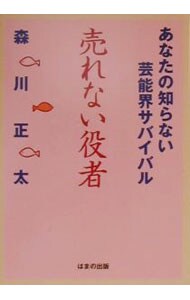 あなたの知らない
芸能界サバイバル
売れない役者
森川正太
はまの出版